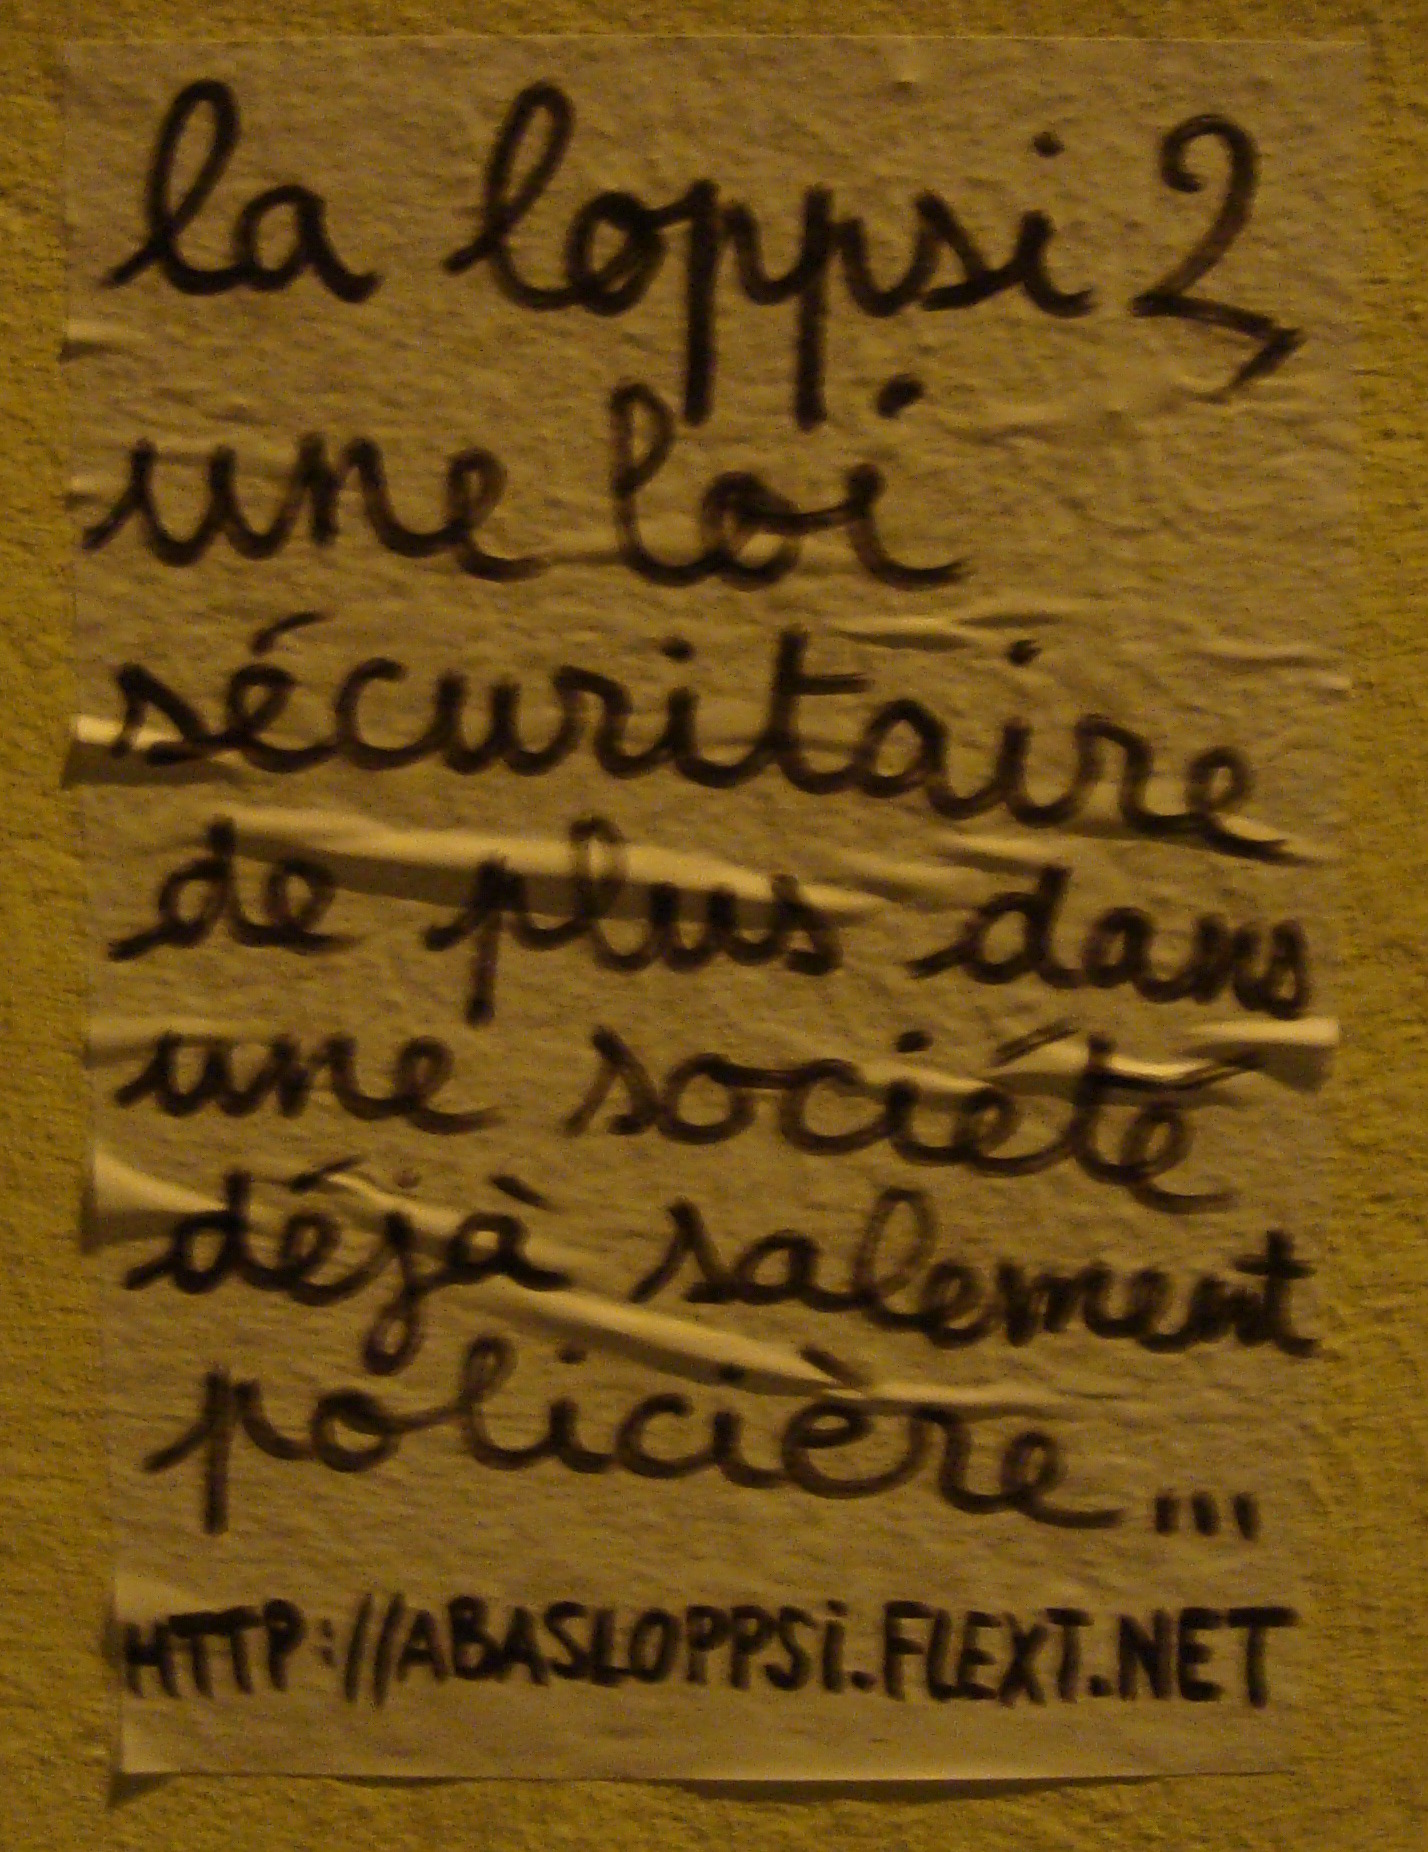 la loppsi 2,
une loi
sécuritaire
de plus dans
une société
déjà salement
policière...
HTTP://ABASLOPPSi.FLEXT.NET